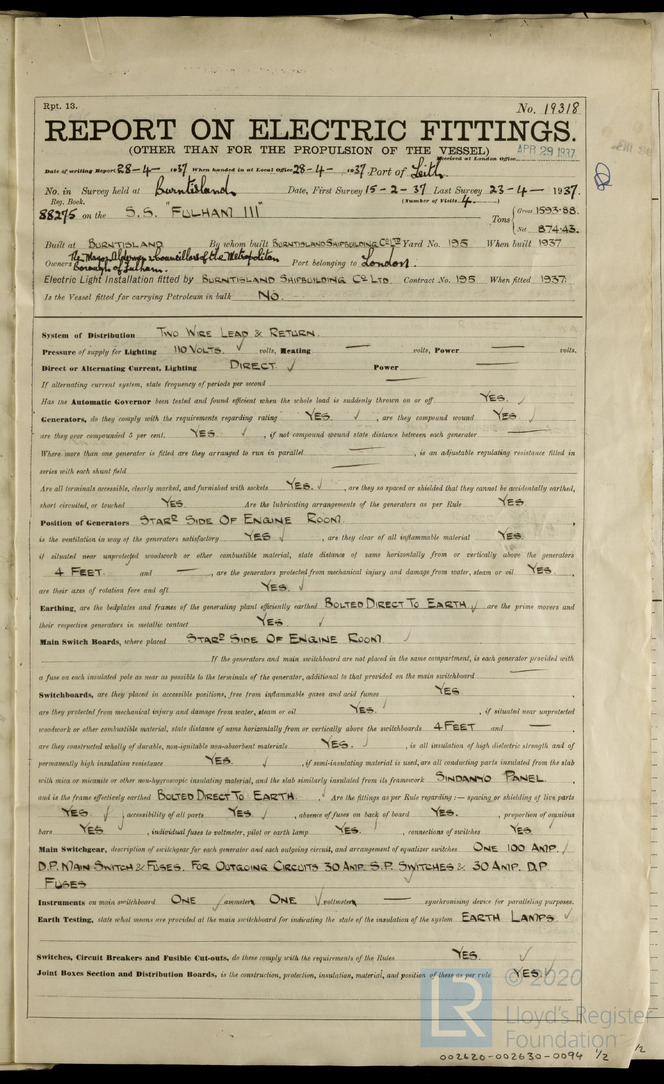 Rpt. 13.
No. 19318
REPORT ON ELECTRIC FITTINGS.
(OTHER THAN FOR THE PROPULSION OF THE VESSEL)
Received at London Office APR 29 1937
Date of writing Report 28-4- 1937 When handed in at Local Office 28-4- 1937 Port of Leith.
No. in Survey held at Burntisland Date, First Survey 15-2-37 Last Survey 23-4- 1937.
Reg. Book. (Number of Visits 4.)
88275 on the S.S. "FULHAM III" Tons { Gross 1593.88.
Net 874.43.
Built at BURNTISLAND By whom built BURNTISLAND SHIPBUILDING Co LTD Yard No. 195 When built 1937
Owners The Mayor Aldermen & Councillors of the Metropolitan Borough of Fulham. Port belonging to London.
Electric Light Installation fitted by BURNTISLAND SHIPBUILDING Co LTD. Contract No. 195 When fitted 1937.
Is the Vessel fitted for carrying Petroleum in bulk NO.
System of Distribution TWO WIRE LEAD & RETURN.
Pressure of supply for Lighting 110 VOLTS. ✓ volts, Heating — volts, Power — volts.
Direct or Alternating Current, Lighting DIRECT ✓ Power —
If alternating current system, state frequency of periods per second —
Has the Automatic Governor been tested and found efficient when the whole load is suddenly thrown on or off YES. ✓
Generators, do they comply with the requirements regarding rating YES. ✓, are they compound wound YES ✓
are they over compounded 5 per cent. YES ✓, if not compound wound state distance between each generator —
Where more than one generator is fitted are they arranged to run in parallel —, is an adjustable regulating resistance fitted in
series with each shunt field —
Are all terminals accessible, clearly marked, and furnished with sockets YES. ✓, are they so spaced or shielded that they cannot be accidentally earthed,
short circuited, or touched YES Are the lubricating arrangements of the generators as per Rule YES
Position of Generators STARD SIDE OF ENGINE ROOM.
is the ventilation in way of the generators satisfactory YES ✓, are they clear of all inflammable material YES.
if situated near unprotected woodwork or other combustible material, state distance of same horizontally from or vertically above the generators
4 FEET and —, are the generators protected from mechanical injury and damage from water, steam or oil YES,
are their axes of rotation fore and aft YES. ✓
Earthing, are the bedplates and frames of the generating plant efficiently earthed BOLTED DIRECT TO EARTH ✓ are the prime movers and
their respective generators in metallic contact YES ✓
Main Switch Boards, where placed STARD SIDE OF ENGINE ROOM ✓
If the generators and main switchboard are not placed in the same compartment, is each generator provided with
a fuse on each insulated pole as near as possible to the terminals of the generator, additional to that provided on the main switchboard —
Switchboards, are they placed in accessible positions, free from inflammable gases and acid fumes YES,
are they protected from mechanical injury and damage from water, steam or oil YES. ✓, if situated near unprotected
woodwork or other combustible material, state distance of same horizontally from or vertically above the switchboards 4 FEET and —,
are they constructed wholly of durable, non-ignitable non-absorbent materials YES. ✓, is all insulation of high dielectric strength and of
permanently high insulation resistance YES. ✓, if semi-insulating material is used, are all conducting parts insulated from the slab
with mica or micanite or other non-hygroscopic insulating material, and the slab similarly insulated from its framework SINDANYO PANEL.
and is the frame effectively earthed BOLTED DIRECT TO EARTH. ✓ Are the fittings as per Rule regarding :— spacing or shielding of live parts
YES ✓, accessibility of all parts YES. ✓, absence of fuses on back of board YES., proportion of omnibus
bars YES ✓, individual fuses to voltmeter, pilot or earth lamp YES. ✓, connections of switches YES.
Main Switchgear, description of switchgear for each generator and each outgoing circuit, and arrangement of equalizer switches ONE 100 AMP. ✓
D.P. MAIN SWITCH & FUSES. FOR OUTGOING CIRCUITS 30 AMP. S.P. SWITCHES & 30 AMP. D.P
FUSES ✓
Instruments on main switchboard ONE ✓ ammeters ONE ✓ voltmeters — synchronising device for paralleling purposes.
Earth Testing, state what means are provided at the main switchboard for indicating the state of the insulation of the system EARTH LAMPS ✓
Switches, Circuit Breakers and Fusible Cut-outs, do these comply with the requirements of the Rules YES. ✓
Joint Boxes Section and Distribution Boards, is the construction, protection, insulation, material, and position of these as per rule YES. ✓
LR © 2020
Lloyd's Register
Foundation
002620-002630-0094 1/2